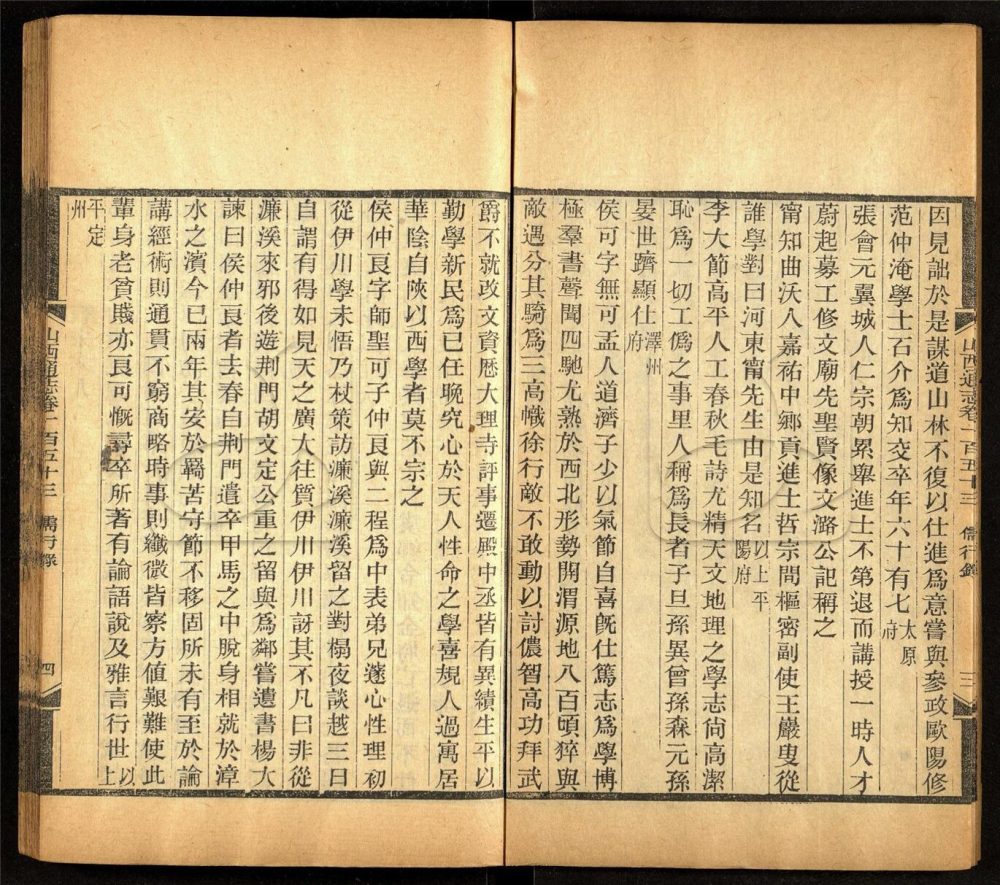 因見詘於是謀道山林不復以仕進爲意嘗與參政歐陽修
范仲淹學士石介爲知交卒年六十有七太原府
張會元翼城人仁宗朝累舉進士不第退而講授一時人才
蔚起募工修文廟先聖賢像文潞公記稱之
甯知曲沃人嘉祐中鄉貢進士哲宗問樞密副使王巖叟從
誰學對曰河東甯先生由是知名以上平陽府
李大節高平人工春秋毛詩尤精天文地理之學志尙高潔
恥爲一切工僞之事里人稱爲長者子旦孫異曾孫森元孫
晏世躋顯仕澤州府
侯可字無可盂人道濟子少以氣節自喜旣仕篤志爲學博
極羣書聲聞四馳尤熟於西北形勢開渭源地八百頃猝與
敵遇分其騎爲三高幟徐行敵不敢動以討儂智高功拜武
山西通志卷一百五十三 儒行錄 三
爵不就改文資歷大理寺評事遷殿中丞皆有異績生平以
勤學新民爲已任晚究心於天人性命之學喜規人過寓居
華陰自陜以西學者莫不宗之
侯仲艮字師聖可子仲艮與二程爲中表弟兄邃心性理初
從伊川學未悟乃杖策訪濂溪濂溪留之對榻夜談越三日
自謂有得如見天之廣大往質伊川伊川訝其不凡曰非從
濂溪來邪後遊荆門胡文定公重之留與爲鄰嘗遺書楊大
諫曰侯仲艮者去春自荆門遣卒甲馬之中脫身相就於漳
水之濱今已兩年其安於羇苦守節不移固所未有至於論
講經術則通貫不窮商略時事則纖微皆察方值艱難使此
輩身老貧賤亦艮可慨尋卒所著有論語說及雅言行世以上
平定州
山西通志卷一百五十三 儒行錄 四